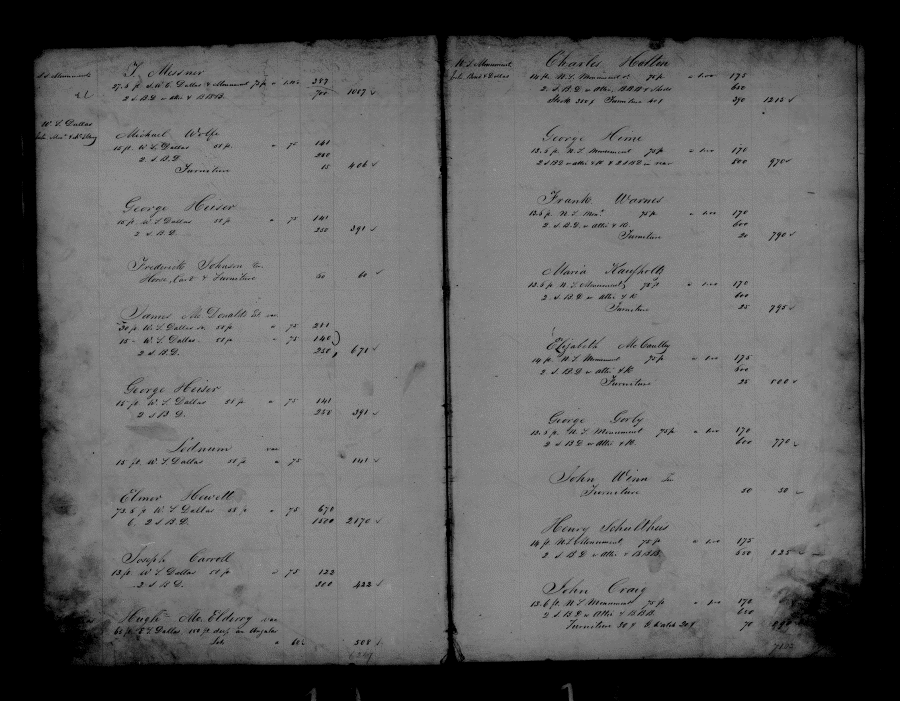 S. S. Monument
J. Messner
27.6 ft S. W. C. Dallas & Monument 75 ft 287
2 S. B. D. w attic & B. B. B. 720 1007
W. S. Dallas
Michael Wolfe
15 ft W. S. Dallas 55 ft " 75 141
2 S B. D. 250
Furniture 15 406
George Heiser
15 ft W. S. Dallas 55 ft " 75 141
2 S. B. D. 250 391
Frederick Johnson
Horse, Cart & Furniture 60 60
James Mc Donalds
30 ft W. S. Dallas 55 ft " 75 281
15 " W. S. Dallas 55 ft " 75 140
2 S B. D. 250 671
George Heiser
15 ft W. S. Dallas 55 ft " 75 141
2 S B D. 250 391
Lednum
15 ft W. S. Dallas 55 ft " 75 141
Elmer Hewett
W. S. Dallas 55 ft " 75 670
6, 2 S B. D. 1500 2170
Joseph Carroll
13 ft W. S. Dallas 50 ft " 75 122
2 S B D. 300 422
Hugh Mc Elderry
E. S. Dallas 150 ft deep
Lot 508
N. S. Monument
Charles Holton
14 ft N. S. Monument 75 ft 175
2 S. B. D. w attic, B. B. B & Shed 650
Stock 350 $ Furniture 40 $ 390 1215
George Hime
13.6 ft N. S. Monument 75 ft 170
2 S B D w attic & K & 2 S B D in rear 800 970
Frank Warnes
13.6 ft N. S. Mont. 75 ft 170
2 S. B. D. w attic & K. 600
Furniture 20 790
Maria
13.6 ft N. S. Monument 75 ft 170
2 S. B. D w attic & K 600
Furniture 25 795
Elizabeth McCaulley
14 ft N. S. Monument 75 ft 175
2 S B. D w attic & K. 600
Furniture 25 800
George Gorby
13.6 ft N. S. Monument 75 ft 170
2 S B D w attic & K. 600 770
John Winn
Furniture 50 50
Henry Schulthus
14 ft N. S. Monument 75 ft 175
2 S. B D w attic & B B B. 650 825
John Craig
13.6 ft N. S. Monument 75 ft 170
2 S B D w attic & B B B. 650
Furniture 50 $ G Watch 20 $ 70